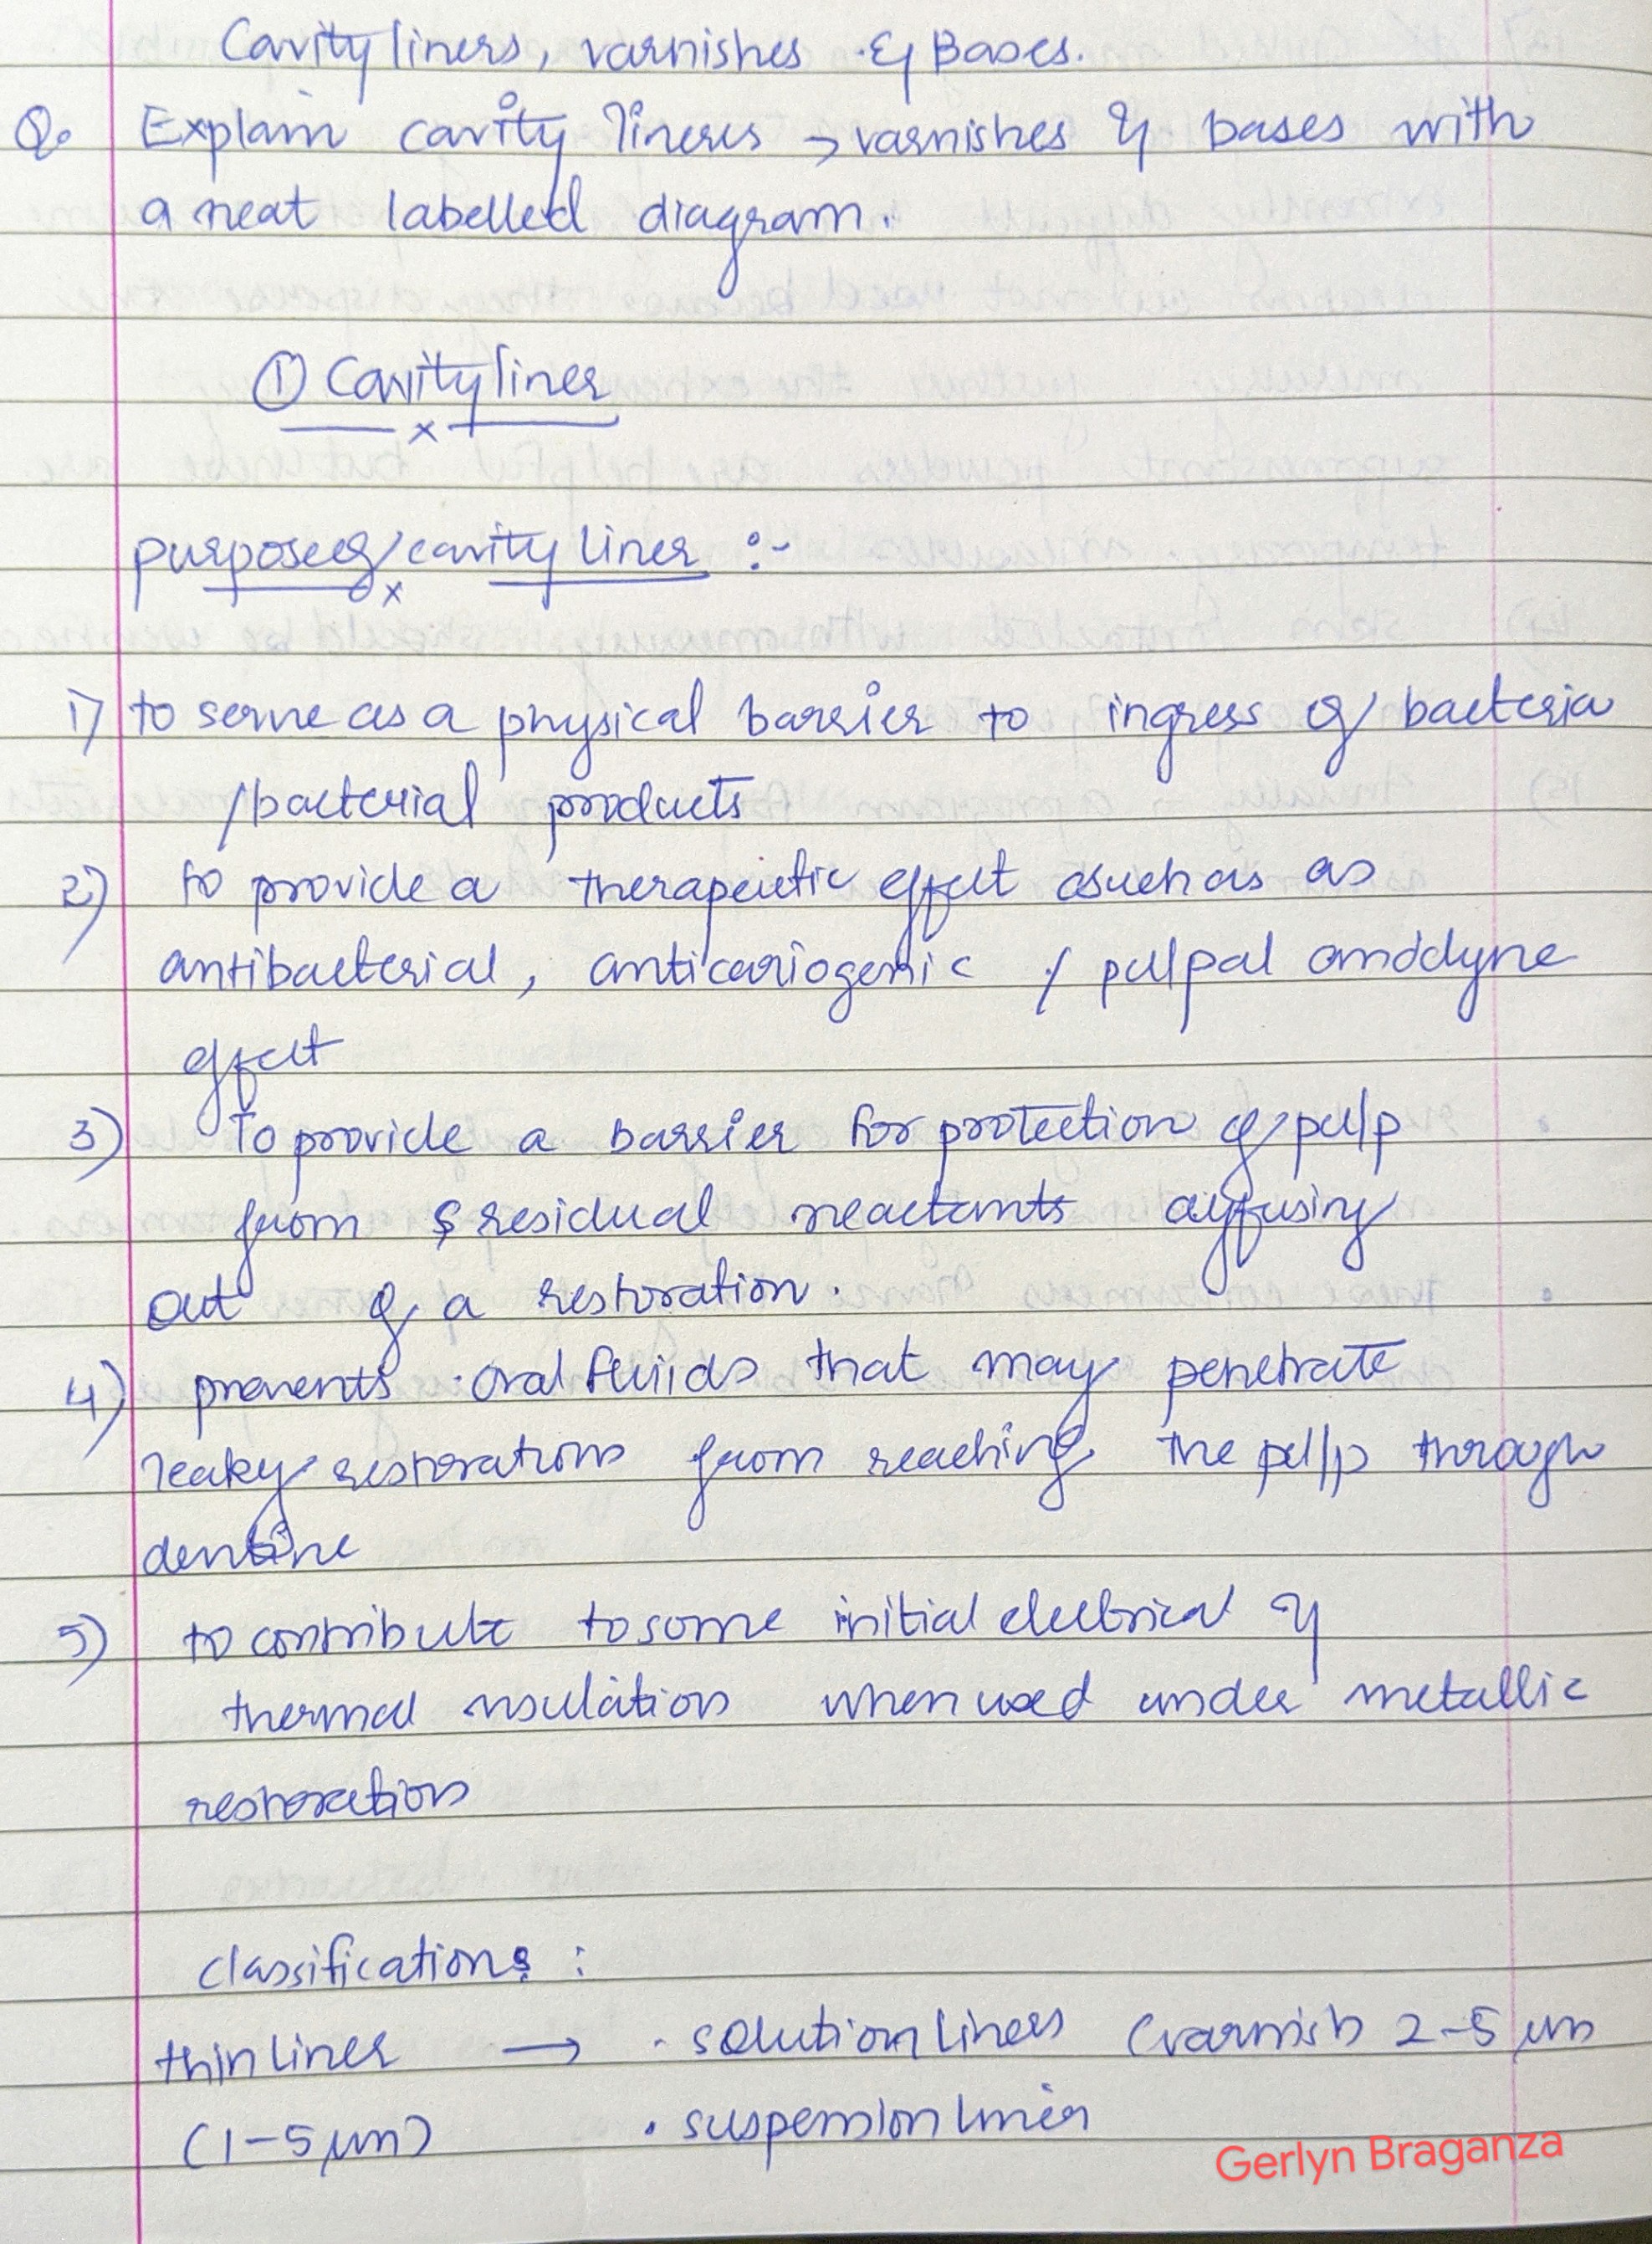 Cavity liners, varnishes & Bases.
Q. Explain cavity liners, varnishes & bases with
a neat labelled diagram.
① Cavity liner
purpose of cavity liner :-
1) to serve as a physical barrier to ingress of bacteria
/bacterial products
2) to provide a therapeutic effect such as as
antibacterial, anticariogenic / pulpal anodyne
effect
3) To provide a barrier for protection of pulp
from residual reactants diffusing
out of a restoration.
4) prevents oral fluids that may penetrate
leaky restorations from reaching the pulp through
dentine
5) to contribute to some initial electrical &
thermal insulation when used under metallic
restoration
classifications :
thin liner → • solution liners (varnish 2-5 μm
(1-5 μm) • suspension liner
Gerlyn Braganza